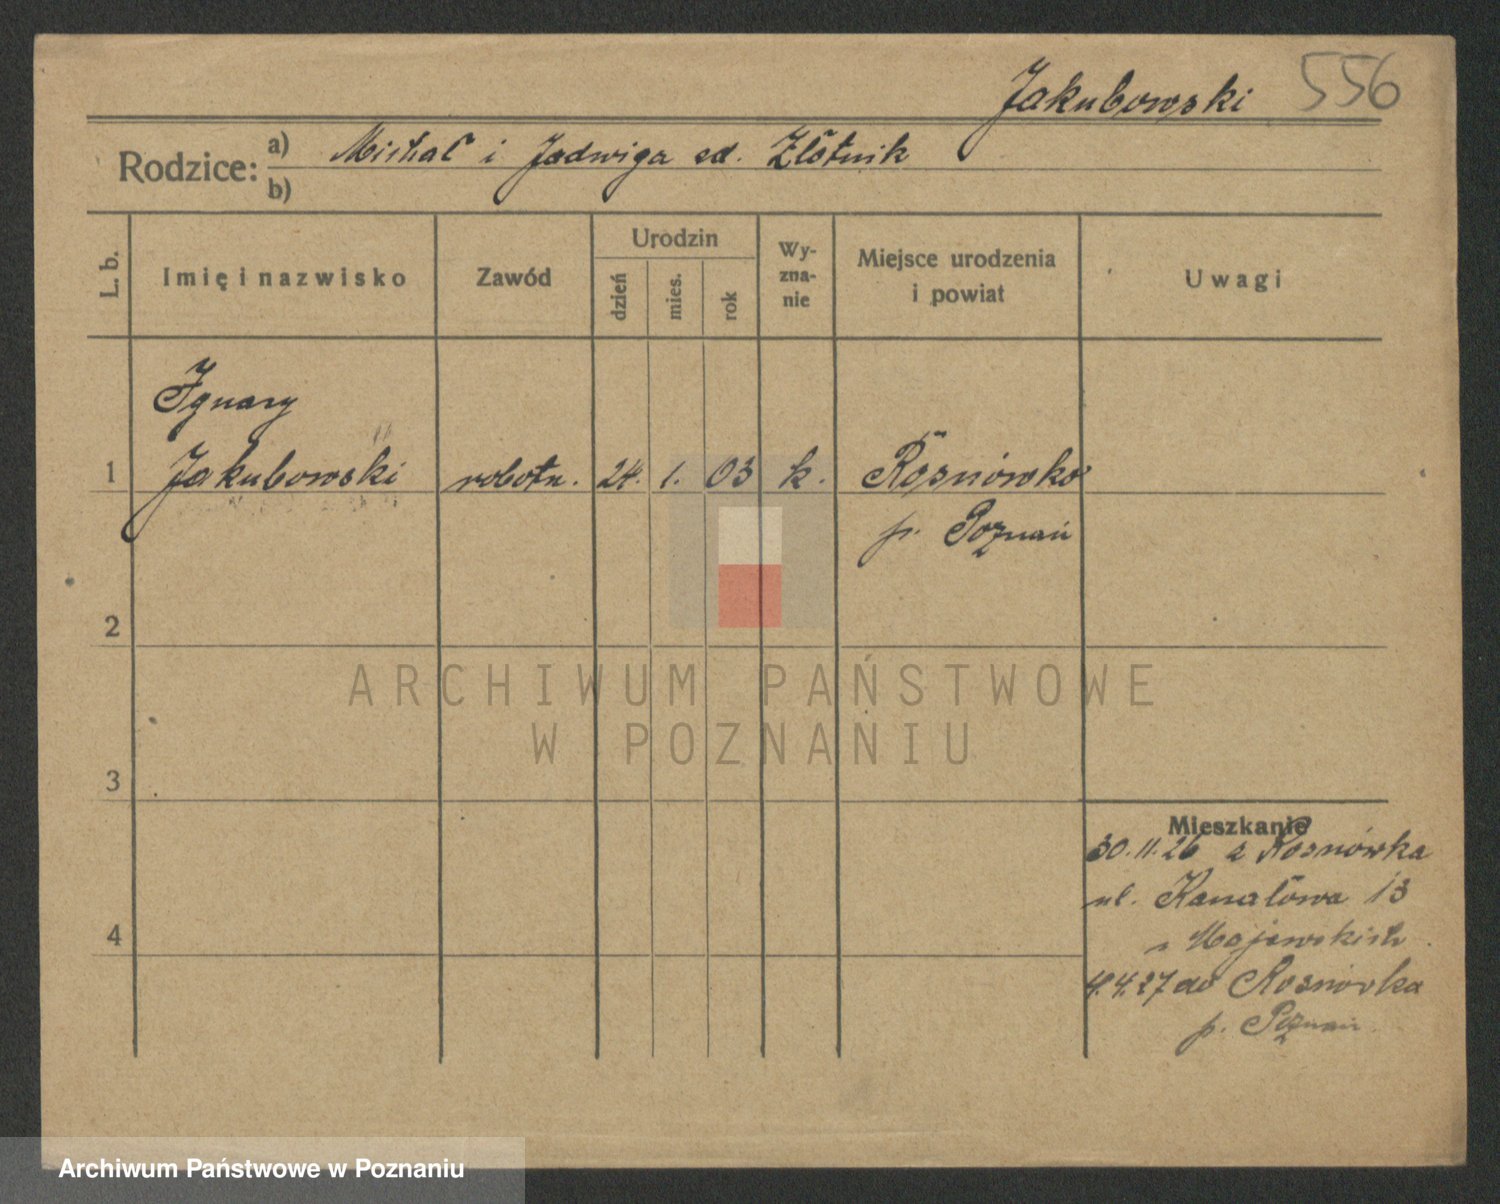 Jakubowski 556
Rodzice: a) Michał i Jadwiga zd. Złotnik
b)
L. b. Imię i nazwisko Zawód Urodzin dzień mies. rok Wyznanie Miejsce urodzenia i powiat Uwagi
Ignacy
1 Jakubowski robotn. 24. 1. 03 k. Rosnówko
p. Poznań
2
ARCHIWUM PAŃSTWOWE
W POZNANIU
3
Mieszkanie
30.11.26 z Rosnówka
ul. Kanałowa 13
Majewskich
4
4.4.27 do Rosnówka
p. Poznań
Archiwum Państwowe w Poznaniu